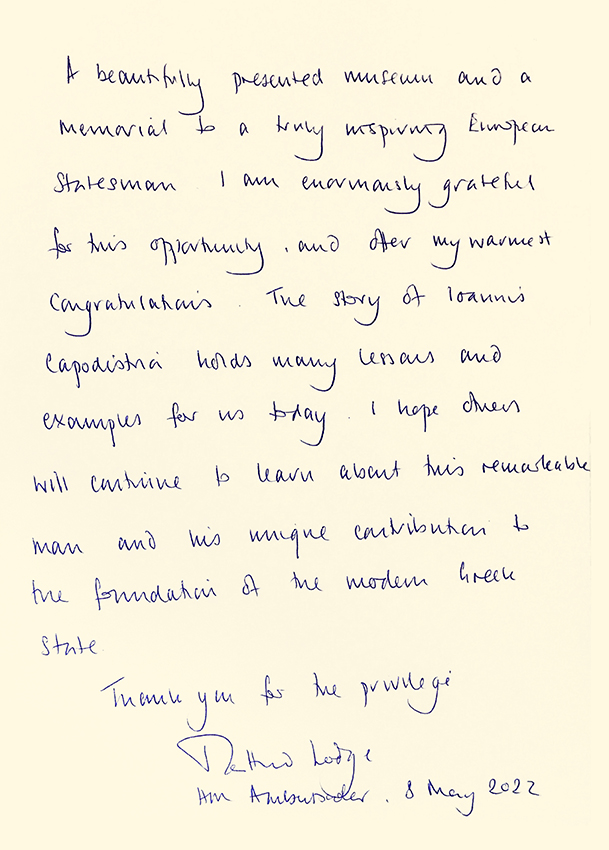 A beautifully presented museum and a
memorial to a truly inspiring European
Statesman. I am enormously grateful
for this opportunity, and offer my warmest
Congratulations. The story of Ioannis
Capodistria holds many lessons and
examples for us today. I hope others
will continue to learn about this remarkable
man and his unique contribution to
the foundation of the modern Greek
State.
Thank you for the privilege
Matthew Lodge
HM Ambassador. 8 May 2022